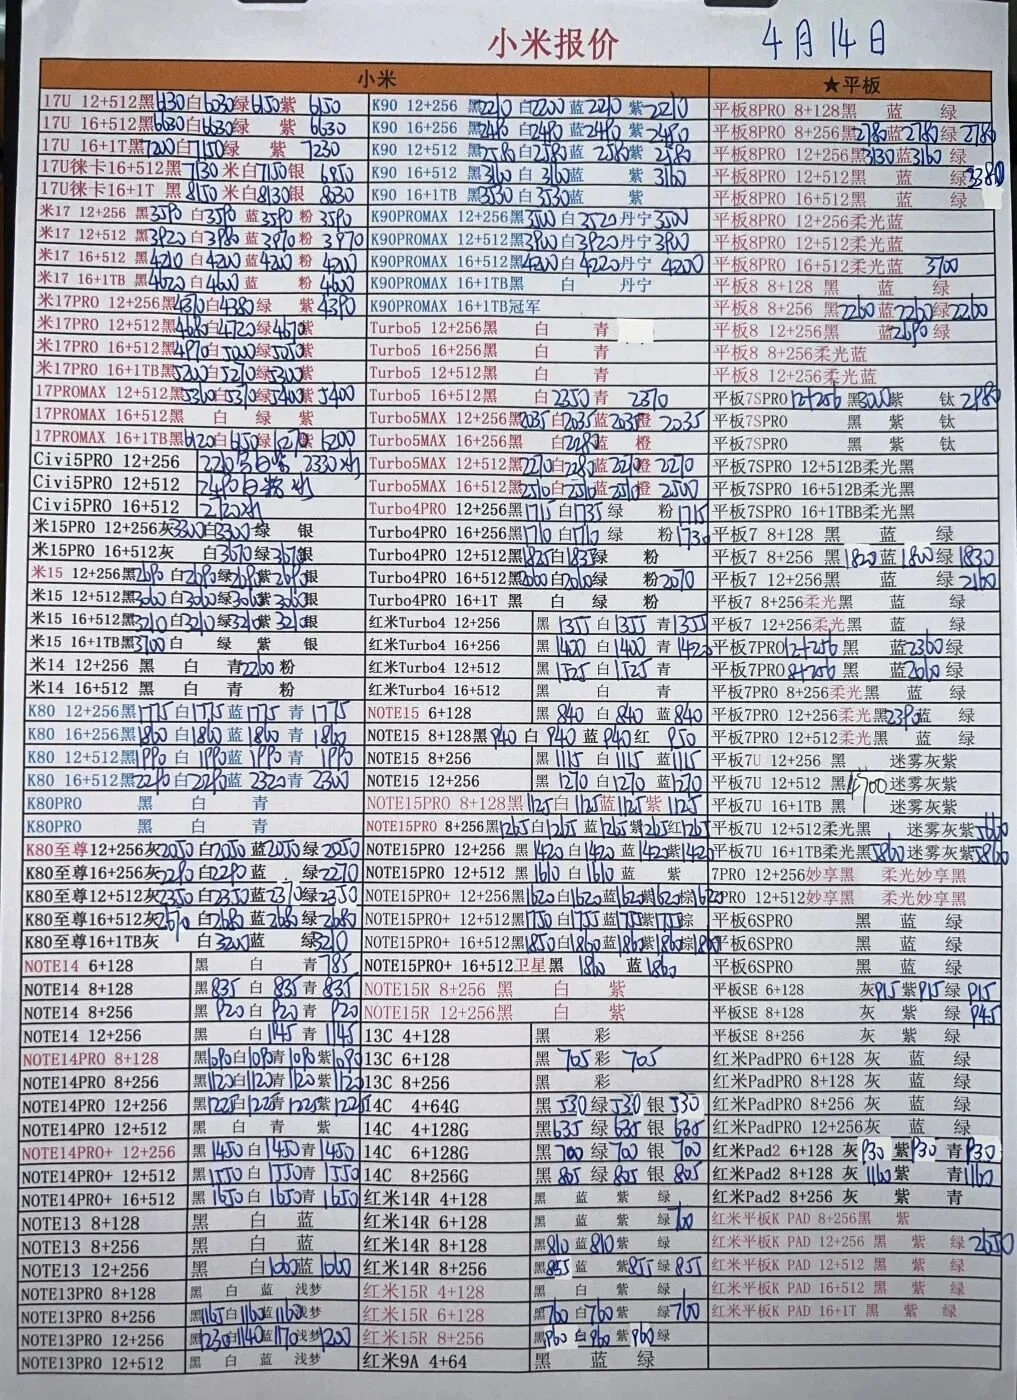 小米报价 4月14日
小米
17U 12+512黑6130白6030绿6150紫 6150
17U 16+512黑6630白6630绿 紫 6630
17U 16+1T黑7200白7150绿 紫 7230
17U徕卡16+512黑7130 米白7150银 6950
17U徕卡16+1T 黑8150 米白8130银 8030
米17 12+256 黑3590 白3590 蓝3590 粉 3590
米17 12+512 黑3920 白3980 蓝3970 粉 3970
米17 16+512 黑4210 白4200 蓝4200 粉 4200
米17 16+1TB 黑4620 白4600 蓝 粉 4600
米17PRO 12+256黑4370白4380绿 紫4390
米17PRO 12+512黑4680白4720绿4670紫
米17PRO 16+512黑4970白5020绿5050紫
米17PRO 16+1TB黑5200白5210绿5200紫
17PROMAX 12+512黑5360白5370绿5400紫5400
17PROMAX 16+512黑 白 绿 紫
17PROMAX 16+1TB黑6120白6150绿6270紫6200
Civi5PRO 12+256
Civi5PRO 12+512
Civi5PRO 16+512
米15PRO 12+256灰3300白3300绿 银
米15PRO 16+512灰 白3670绿3670银
米15 12+256黑2690 白2690绿2690紫2690银
米15 12+512黑3060 白3060绿3060紫3060银
米15 16+512黑3210 白3210绿3210紫3210银
米15 16+1TB黑3700白 绿 紫 银
米14 12+256 黑 白 青2260粉
米14 16+512 黑 白 青 粉
K80 12+256黑1775白1775蓝1775 青 1775
K80 16+256黑1860白1860蓝1860 青 1860
K80 12+512黑1990 白1990蓝1990 青 1990
K80 16+512黑2290 白2290蓝2320 青 2300
K80PRO 黑 白 青
K80PRO 黑 白 青
K80至尊12+256灰2050 白2050 蓝2050 绿 2050
K80至尊16+256灰2290白2290 蓝 绿2270
K80至尊12+512灰2350白2350 蓝2370绿2350
K80至尊16+512灰2670 白2680 蓝2680 绿2680
K80至尊16+1TB灰 白3200蓝 绿3210
NOTE14 6+128 黑 白 青785
NOTE14 8+128 黑835 白 835 青835
NOTE14 8+256 黑920 白 920 青920
NOTE14 12+256 黑 白1145 青1145
NOTE14PRO 8+128 黑1090白1090青1090紫1090
NOTE14PRO 8+256 黑1120白1120青1120紫1120
NOTE14PRO 12+256 黑1225白1225青1225紫1225
NOTE14PRO 12+512 黑 白 青 紫
NOTE14PRO+ 12+256 黑1450 白1450青1450
NOTE14PRO+ 12+512 黑1550 白1550青1550
NOTE14PRO+ 16+512 黑1650 白1650青1650
NOTE13 8+128 黑 白 蓝
NOTE13 8+256 黑 白 蓝
NOTE13 12+256 黑 白1060蓝1060
NOTE13PRO 8+128 黑 白 蓝 浅梦
NOTE13PRO 8+256 黑1165白1160蓝1160浅梦
NOTE13PRO 12+256 黑1230白1140蓝1170浅梦1200
NOTE13PRO 12+512 黑 白 蓝 浅梦
K90 12+256 黑2210 白2200 蓝2210 紫2210
K90 16+256 黑2490 白2490 蓝2490 紫2490
K90 12+512 黑2580白2580蓝 2580紫 2580
K90 16+512 黑3160 白3160蓝 紫 3160
K90 16+1TB 黑3530 白3530蓝 紫
K90PROMAX 12+256黑3500 白3520丹宁3500
K90PROMAX 12+512黑3900白3920丹宁3900
K90PROMAX 16+512黑4200白4220丹宁4200
K90PROMAX 16+1TB黑 白 丹宁
K90PROMAX 16+1TB冠军
Turbo5 12+256黑 白 青
Turbo5 16+256黑 白 青
Turbo5 12+512黑 白 青
Turbo5 16+512黑 白2350 青2370
Turbo5MAX 12+256黑2035白2035蓝2035橙2035
Turbo5MAX 16+256黑 白2280蓝 橙
Turbo5MAX 12+512黑2270白2280蓝2270橙2270
Turbo5MAX 16+512黑2510白2510蓝2510橙2500
Turbo4PRO 12+256黑1715白1735绿 粉1715
Turbo4PRO 16+256黑1710白1710绿 粉1730
Turbo4PRO 12+512黑1825白1835绿 粉
Turbo4PRO 16+512黑2060白2060绿 粉2070
Turbo4PRO 16+1T 黑 白 绿 粉
红米Turbo4 12+256 黑1355白1355青1355
红米Turbo4 16+256 黑1400白1400青1420
红米Turbo4 12+512 黑1525白1525青
红米Turbo4 16+512 黑 白 青
NOTE15 6+128 黑 840 白 840 蓝 840
NOTE15 8+128黑940 白 940 蓝940红 950
NOTE15 8+256 黑1115 白1115 蓝1115
NOTE15 12+256 黑1270 白1270 蓝1270
NOTE15PRO 8+128黑1125白1125蓝1125紫 1125
NOTE15PRO 8+256黑1265白1265 蓝1265紫1265红1265
NOTE15PRO 12+256 黑1420 白1420 蓝1420紫1420
NOTE15PRO 12+512 黑1610 白1610 蓝 紫
NOTE15PRO+ 12+256黑1620白1620蓝1620紫1620棕1620
NOTE15PRO+ 12+512黑1750白1755蓝1755紫1755棕
NOTE15PRO+ 16+512黑1850白1860蓝1860紫1860棕1860
NOTE15PRO+ 16+512卫星黑 1860 蓝1860
NOTE15R 8+256 黑 白 紫
NOTE15R 12+256黑 白 紫
13C 4+128 黑 彩
13C 6+128 黑 705 彩 705
13C 8+256 黑 彩
14C 4+64G 黑 530 绿530 银 530
14C 4+128G 黑635 绿 635 银 635
14C 6+128G 黑700 绿700 银 700
14C 8+256G 黑805 绿 805 银 805
红米14R 4+128 黑 蓝 紫 绿
红米14R 6+128 黑 蓝 紫 绿760
红米14R 8+128 黑810 蓝810紫 绿
红米14R 8+256 黑855 蓝 紫855绿 855
红米15R 4+128 黑 白 紫 绿
红米15R 6+128 黑760 白760紫 绿760
红米15R 8+256 黑960 白960 紫960绿
红米9A 4+64 黑 蓝 绿
★平板
平板8PRO 8+128黑 蓝 绿
平板8PRO 8+256黑2780蓝2780绿2780
平板8PRO 12+256黑3130蓝3160 绿
平板8PRO 12+512黑 蓝 绿3380
平板8PRO 16+512黑 蓝 绿
平板8PRO 12+256柔光蓝
平板8PRO 12+512柔光蓝
平板8PRO 16+512柔光蓝 3700
平板8 8+128 黑 蓝 绿
平板8 8+256 黑2260蓝2260绿2260
平板8 12+256黑 蓝2690 绿
平板8 8+256柔光蓝
平板8 12+256柔光蓝
平板7SPRO12+256 黑3000紫 钛2980
平板7SPRO 黑 紫 钛
平板7SPRO 黑 紫 钛
平板7SPRO 12+512B柔光黑
平板7SPRO 16+512B柔光黑
平板7SPRO 16+1TBB柔光黑
平板7 8+128 黑 蓝 绿
平板7 8+256 黑1820 蓝1860 绿1830
平板7 12+256 黑 蓝 绿2160
平板7 8+256柔光黑 蓝 绿
平板7 12+256柔光黑 蓝 绿
平板7PRO12+256黑 蓝2360绿
平板7PRO8+256黑 蓝2060绿
平板7PRO 8+256柔光黑 蓝 绿
平板7PRO 12+256柔光黑2390蓝 绿
平板7PRO 12+512柔光黑 蓝 绿
平板7U 12+256 黑 迷雾灰紫
平板7U 12+512 黑4700 迷雾灰紫
平板7U 16+1TB 黑 迷雾灰紫
平板7U 12+512柔光黑 迷雾灰紫
平板7U 16+1TB柔光黑5860迷雾灰紫5860
7PRO 12+256妙享黑 柔光妙享黑
PRO 12+512妙享黑 柔光妙享黑
平板6SPRO 黑 蓝 绿
平板6SPRO 黑 蓝 绿
平板6SPRO 黑 蓝 绿
平板SE 6+128 灰915紫915绿 915
平板SE 8+128 灰 紫 绿 945
平板SE 8+256 灰 紫 绿
红米PadPRO 6+128 灰 蓝 绿
红米PadPRO 8+128 灰 蓝 绿
红米PadPRO 8+256 灰 蓝 绿
红米PadPRO 12+256灰 蓝 绿
红米Pad2 6+128 灰930 紫930 青930
红米Pad2 8+128 灰 1160紫 青1160
红米Pad2 8+256 灰 紫 青
红米平板K PAD 8+256黑 紫
红米平板K PAD 12+256 黑 紫 绿2650
红米平板K PAD 12+512 黑 紫 绿
红米平板K PAD 16+512 黑 紫 绿
红米平板K PAD 16+1T 黑 紫 绿